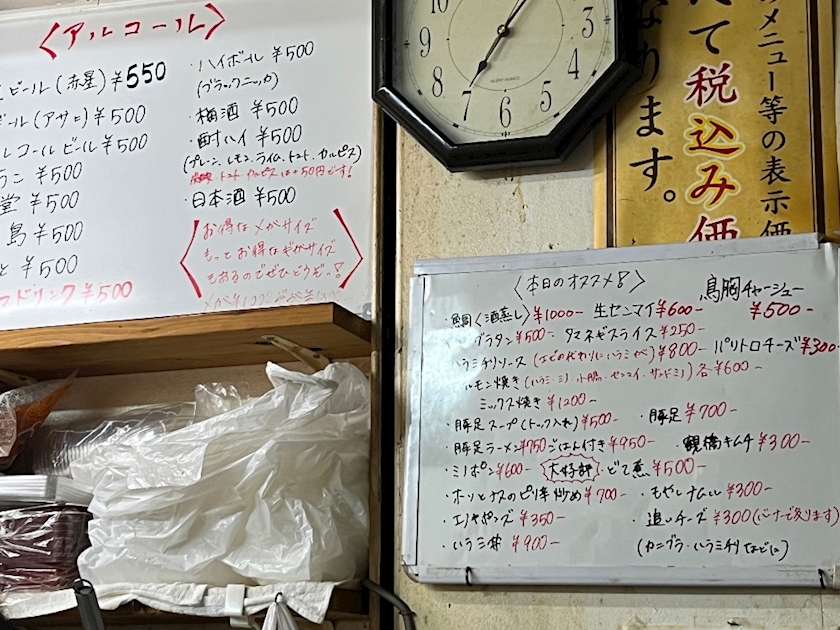 〈アルコール〉
ビール(赤星)¥550
ール(アサヒ)¥500
ルコールビール¥500
¥500
堂 ¥500
島 ¥500
と ¥500
ドリンク¥500
・ハイボール ¥500
(ブラックニッカ)
・梅酒 ¥500
・酎ハイ ¥500
(プレーン、レモン、ライム、トマト、カルピス)
トマト カルピスは+50円です!
・日本酒 ¥500
お得なメガサイズ
もっとお得なギガサイズ
もあるのでぜひどうぞっ!
10
9
8
7
6
5
4
3
メニュー等の表示価
て税込み価
なります。
〈本日のオススメ〉
・鯛〈酒蒸し〉¥1000- 生センマイ¥600-
鳥胸チャーシュー
¥500-
グラタン¥500- タマネギスライス¥250-
ハラミチリソース ¥800- パリトロチーズ¥300-
ルモン焼き(ハラミ・ミノ・小腸・センマイ・) 各¥600-
ミックス焼き ¥1200-
・豚足スープ(トック入れ)¥500- ・豚足 ¥700-
・豚足ラーメン¥750 ごはん付き¥950- ・観橋キムチ¥300-
・ミノポン¥600- 大好評 ・どて煮¥500-
・ホルとナスのピリ辛炒め¥700- ・もやしナムル¥300-
・エリヤポンズ ¥350- ・追いチーズ ¥300(バーナーで炙ります)
・ハラミ丼 ¥900- (カニグラ・ハラミチリなどに)